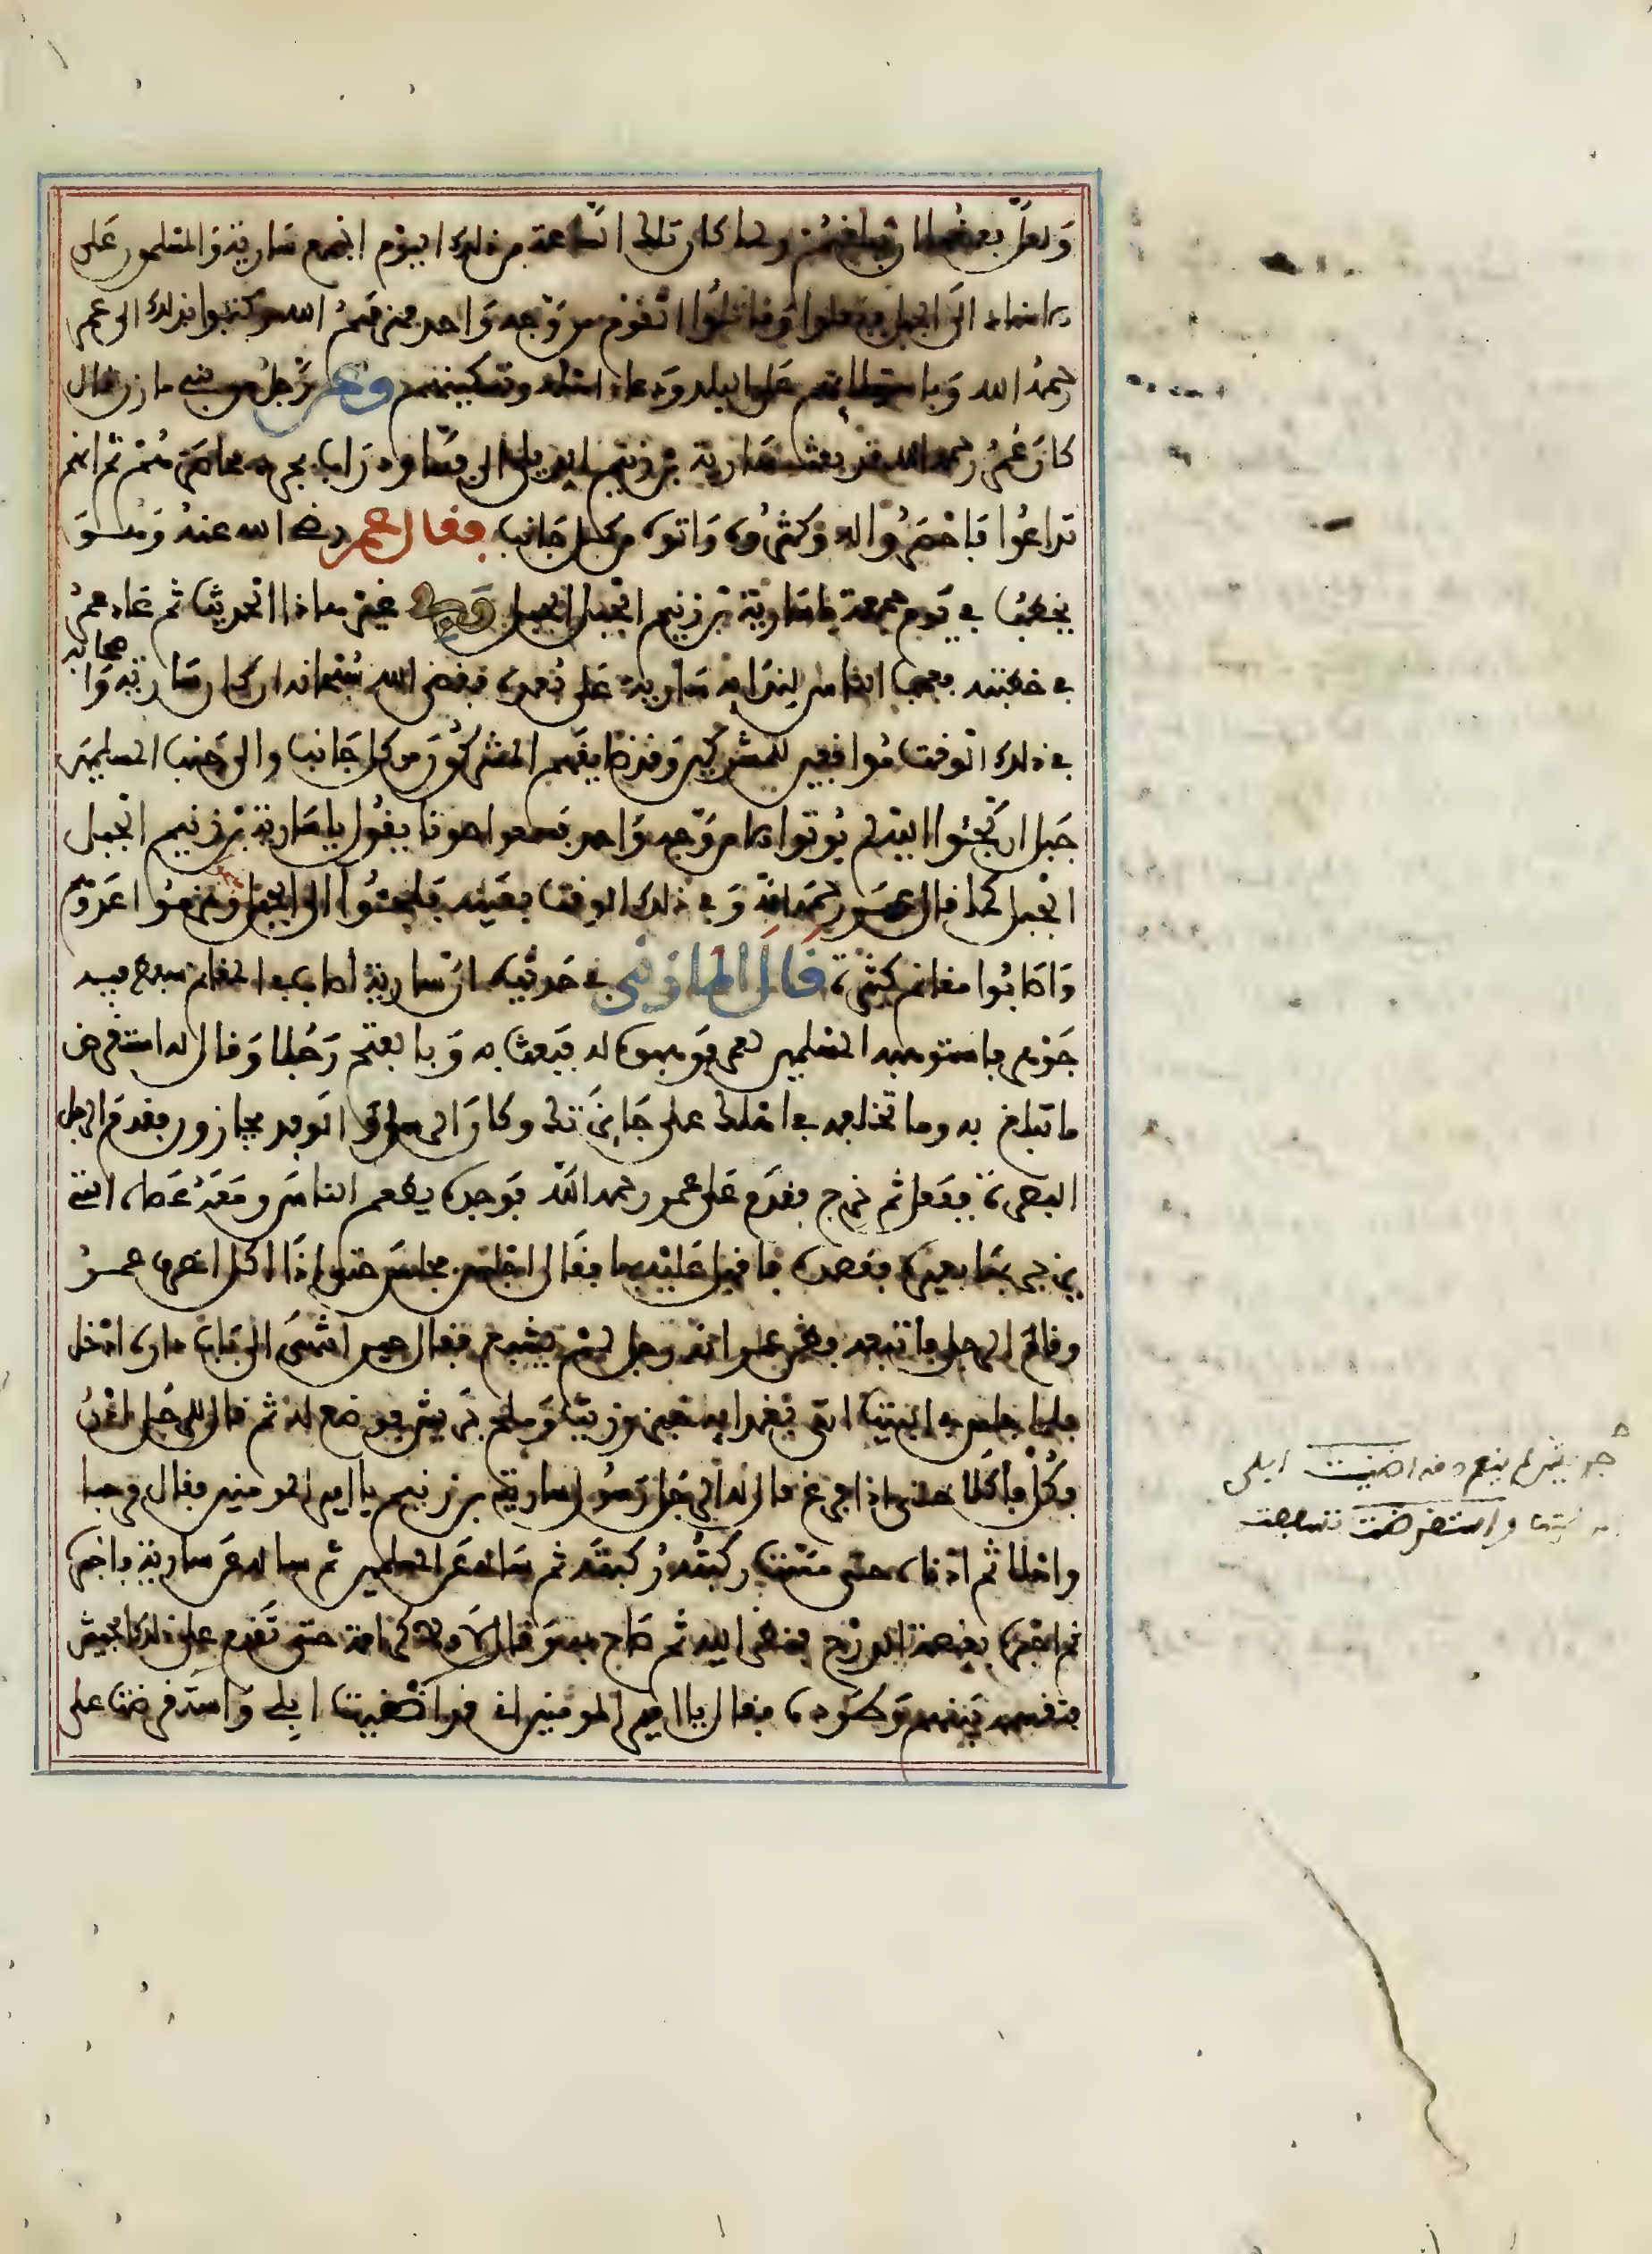 وَلعَلّ بعضها ان يبلغهم ولما كان تلك الساعة من ذلك اليوم اجمع سَارية وَالمسلمون عَلى
الاسناد الى الجبل ففعلوا وَقاتلُوا القوم من وَجه وَاحد فهزمهمُ الله وكتبوا بذلك الى عمر
رحمهُ الله وَباستيلائهم عَلى البلد وَدعاء اهله وتسكينهم وعن رَجل من بني مازن قال
كان عُمر رحمه الله قد بعث سَارية بن زنيم الدؤلي الى فسا ودرَاب بجرد فحاصَرهُمْ ثم انهم
تداعُوا فَاصْحَرُوا له وَكثرُوه وَاتوه من كل جَانب فقال عمر رضي الله عنهُ وَهُوَ
يخطبُ في يَوم جمعة يا سَارية بن زنيم الجبل الجبل وفي غير هذا الحديث ثم عَاد عمرُ
في خطبته فعجب الناس لندَايه سَارية عَلى بُعده فقضى الله سُبْحانه ان كان سَارية وَاصحابه
في ذلك الوقت مُواقفين للمشركين وَقد ضايقهم المشركُون من كل جَانب والى جَنب المسلمين
جَبل ان لجئوا اليه لم يُوتوا الا من وَجه وَاحد فسمعوا صوتا يقُول يا سَارية بن زنيم الجبل
الجبل كما قال عمَر رحمَه الله وَفي ذلك الوقت بعَينه فلجئُوا الى الجبل فهزمُوا عَدوّهم
وَاصَابُوا مغانم كثيرة قال المازني في حَديثه انّ سارية اصاب في المغانم سفط فيه
جَوهر فاستوهبه المسلمين لعمر فوَهبوه له فبَعث به وَبالفتح رَجُلا وَقال له استقرض
ما تبلغ به وما تخلفه في اهلك على جَايزَتك وكان الرسل وَالوفد يجازون فقدم الرجل
البصرة ففعل ثم خرج فقدَم عَلى عمر رحمه الله فوَجده يطعم الناس وَمعَهُ عَصَاه التي
يزجر بهَا بعيره فقصده فاقبل عَليه بها فقال اجلس فجلسَ حتى اذا اكل انصرف عمرُ
وقامَ الرجل فاتبعه فظن عمر انه رجل لمْ يشبع فقال حين انتهى الى بَاب داره ادخل
فلما جلس في البيت اتي بغدايه خبز وزيت وَملح جَريش فوضع له ثم قال للرجُل ادْنُ
فكُلْ فأكَلا حتى اذا فرغ قال له الرجُل رَسُول سارية بن زنيم يا امير المومنين فقال مرحبا
واهلا ثم ادناه حتى مَسّت ركبتُه رُكبتَه ثم سَاله عَن المسلمين ثم ساله عَن سارية فاخبره
ثم اخبره بقصة الدرج فنظر اليه ثم صَاح به وقال لا ولا كرَامة حتى تقدم على ذلك الجيش
فتقسمه بَينهم وَطرَده فقال يا امير المومنين اني قد انضيت ابلي وَاستقرضت على
جريش لم ينعم دقه انضيت ابلي
واستقرضت